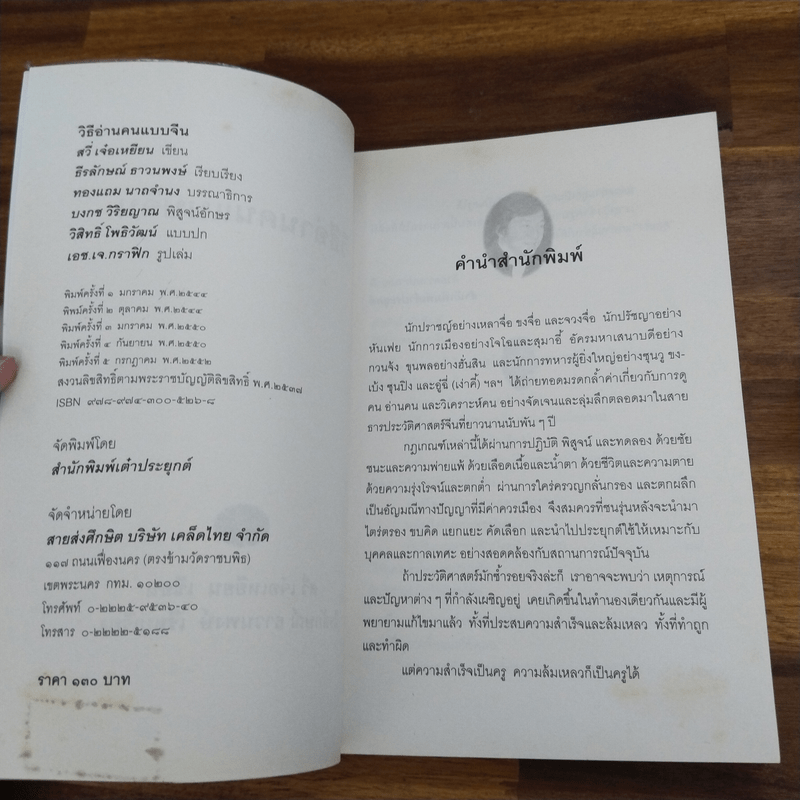 วิธีอ่านคนแบบจีน
สวี่ เจ๋อเหยียน เขียน
ธีรลักษณ์ ธาวนพงษ์ เรียบเรียง
ทองแถม นาถจำนง บรรณาธิการ
บงกช วิริยญาณ พิสูจน์อักษร
วิสิทธิ์ โพธิวัฒน์ แบบปก
เอช.เจ.กราฟิก รูปเล่ม
พิมพ์ครั้งที่ ๑ มกราคม พ.ศ.๒๕๔๔
พิมพ์ครั้งที่ ๒ ตุลาคม พ.ศ.๒๕๔๔
พิมพ์ครั้งที่ ๓ มกราคม พ.ศ.๒๕๕๐
พิมพ์ครั้งที่ ๔ กันยายน พ.ศ.๒๕๕๐
พิมพ์ครั้งที่ ๕ กรกฎาคม พ.ศ.๒๕๕๒
สงวนลิขสิทธิ์ตามพระราชบัญญัติลิขสิทธิ์ พ.ศ.๒๕๓๗
ISBN ๙๗๘-๙๗๔-๓๐๐-๕๒๖-๘
จัดพิมพ์โดย
สำนักพิมพ์เต๋าประยุกต์
จัดจำหน่ายโดย
สายส่งศึกษิต บริษัท เคล็ดไทย จำกัด
๑๑๗ ถนนเฟื่องนคร (ตรงข้ามวัดราชบพิธ)
เขตพระนคร กทม. ๑๐๒๐๐
โทรศัพท์ ๐-๒๒๒๕-๙๕๓๖-๔๐
โทรสาร ๐-๒๒๒๒-๕๑๘๘
ราคา ๑๓๐ บาท
คำนำสำนักพิมพ์
นักปราชญ์อย่างเหลาจื่อ ขงจื่อ และจวงจื่อ นักปรัชญาอย่าง
หันเฟย นักการเมืองอย่างโจโฉและสุมาอี้ อัครมหาเสนาบดีอย่าง
กวนจัง ขุนพลอย่างฮั่นสิน และนักการทหารผู้ยิ่งใหญ่อย่างซุนวู ขง-
เบ้ง ซุนปิง และอู๋ฉี่ (เง่าคี้) ฯลฯ ได้ถ่ายทอดมรดกล้ำค่าเกี่ยวกับการดู
คน อ่านคน และวิเคราะห์คน อย่างจัดเจนและลุ่มลึกตลอดมาในสาย
ธารประวัติศาสตร์จีนที่ยาวนานนับพัน ๆ ปี
กฎเกณฑ์เหล่านี้ได้ผ่านการปฏิบัติ พิสูจน์ และทดลอง ด้วยชัย
ชนะและความพ่ายแพ้ ด้วยเลือดเนื้อและน้ำตา ด้วยชีวิตและความตาย
ด้วยความรุ่งโรจน์และตกต่ำ ผ่านการใคร่ครวญกลั่นกรอง และตกผลึก
เป็นอัญมณีทางปัญญาที่มีค่าควรเมือง จึงสมควรที่ชนรุ่นหลังจะนำมา
ไตร่ตรอง ขบคิด แยกแยะ คัดเลือก และนำไปประยุกต์ใช้ให้เหมาะกับ
บุคคลและกาลเทศะ อย่างสอดคล้องกับสถานการณ์ปัจจุบัน
ถ้าประวัติศาสตร์มักซ้ำรอยจริงล่ะก็ เราอาจจะพบว่า เหตุการณ์
และปัญหาต่าง ๆ ที่กำลังเผชิญอยู่ เคยเกิดขึ้นในทำนองเดียวกันและมีผู้
พยายามแก้ไขมาแล้ว ทั้งที่ประสบความสำเร็จและล้มเหลว ทั้งที่ทำถูก
และทำผิด
แต่ความสำเร็จเป็นครู ความล้มเหลวก็เป็นครูได้